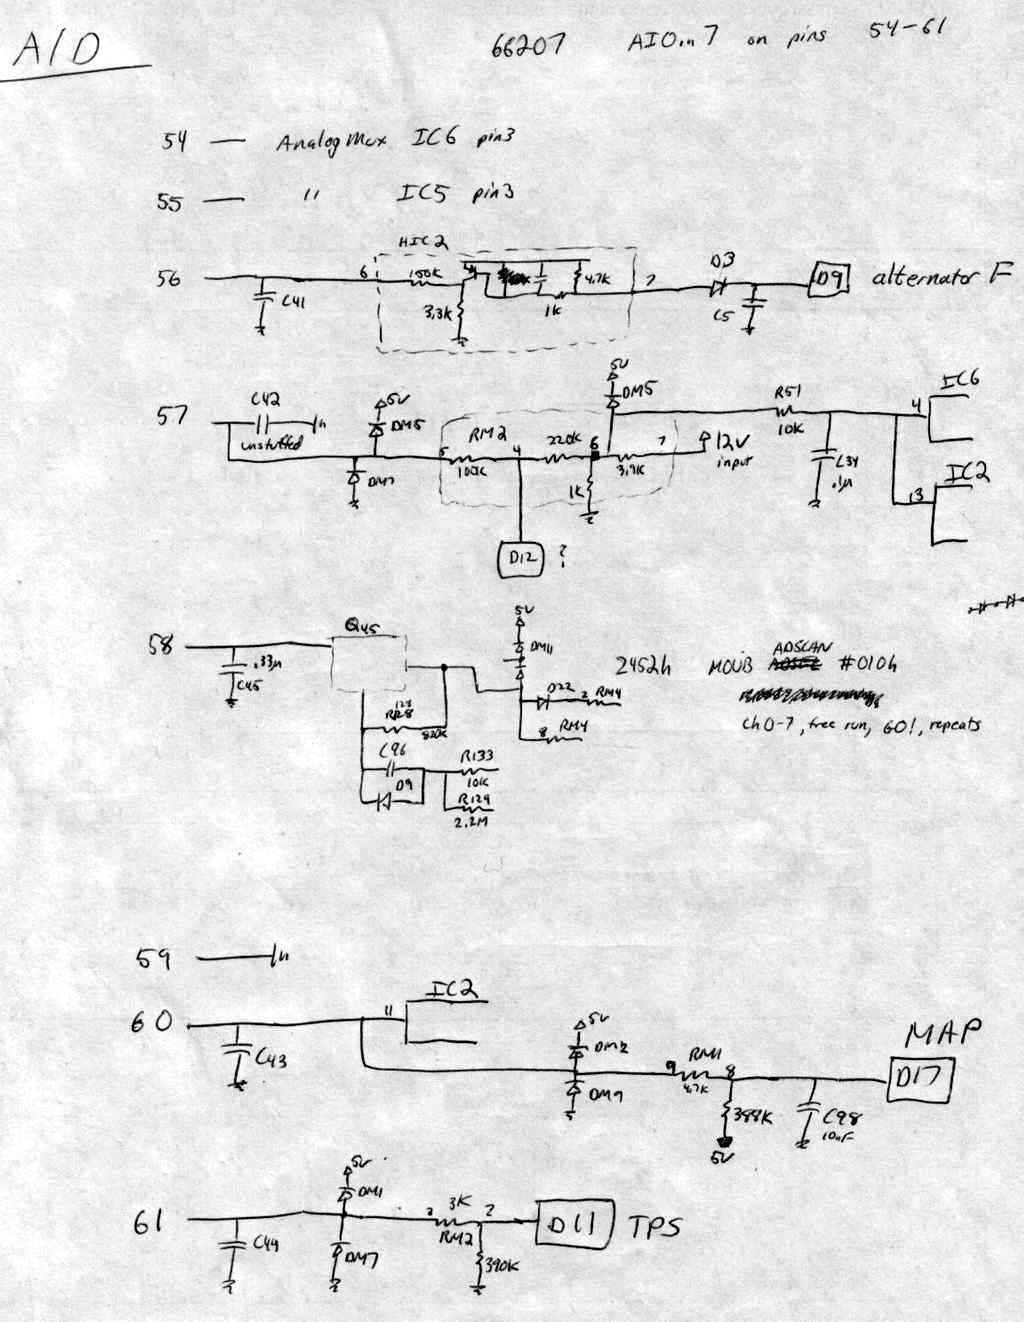 A/D
66207 AIOin7 on pins 54-61
54 — Analog Mux IC6 pin3
55 — " IC5 pin3
HIC2
56 C41 6 100K 3.3K 4.7K 1K 7 D3 C5 D9 alternator F
57 C42 unstuffed 5V DM5 DM7
5 RM2 100K 4 220K 6 3.9K 7 1K 12V input
5V DM5 R51 10K C34 .1µ
4 IC6
13 IC2
D12 ?
58 .33µ C45 Q45
128 RR8 820K
C96 D9 R133 10K
R129 2.2M
5V DM11 D22 2 RM4
8 RM4
2452h MOVB ADSCAN #010h
ch0-7, free run, GO!, repeats
59
60 C43 11 IC2
5V DM2 DM9 9 RM1 4.7K 8
388K 5V C98 10nF D17 MAP
61 C44 5V DM1 DM7 3 3K RM2 2 390K D11 TPS